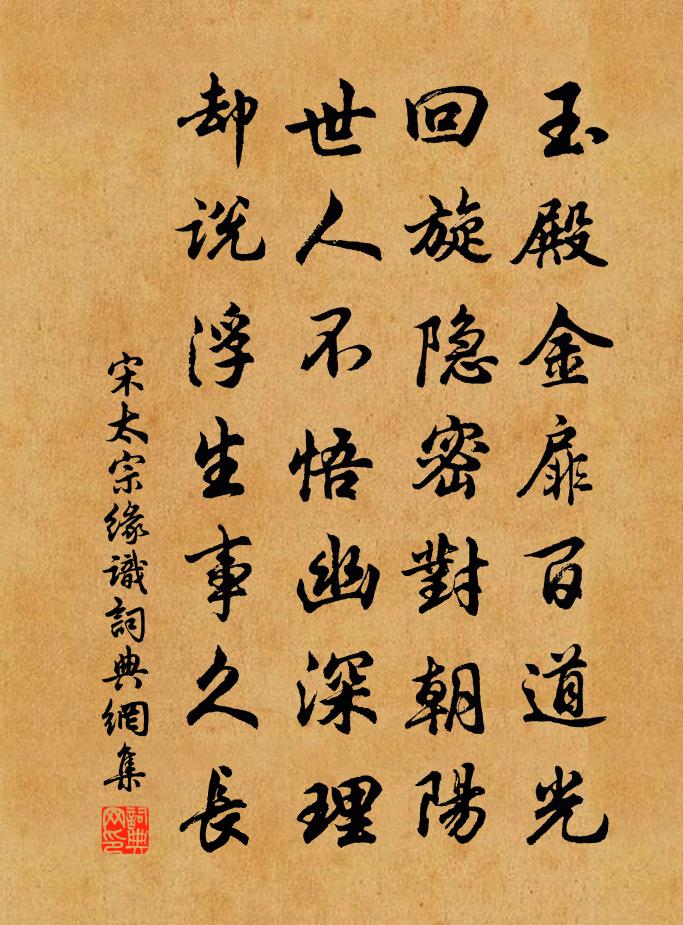 玉殿金扉百道光
回旋隐密對朝陽
世人不悟幽深理
却説浮生事久長
宋太宗緣識詞典網集
詞典网印